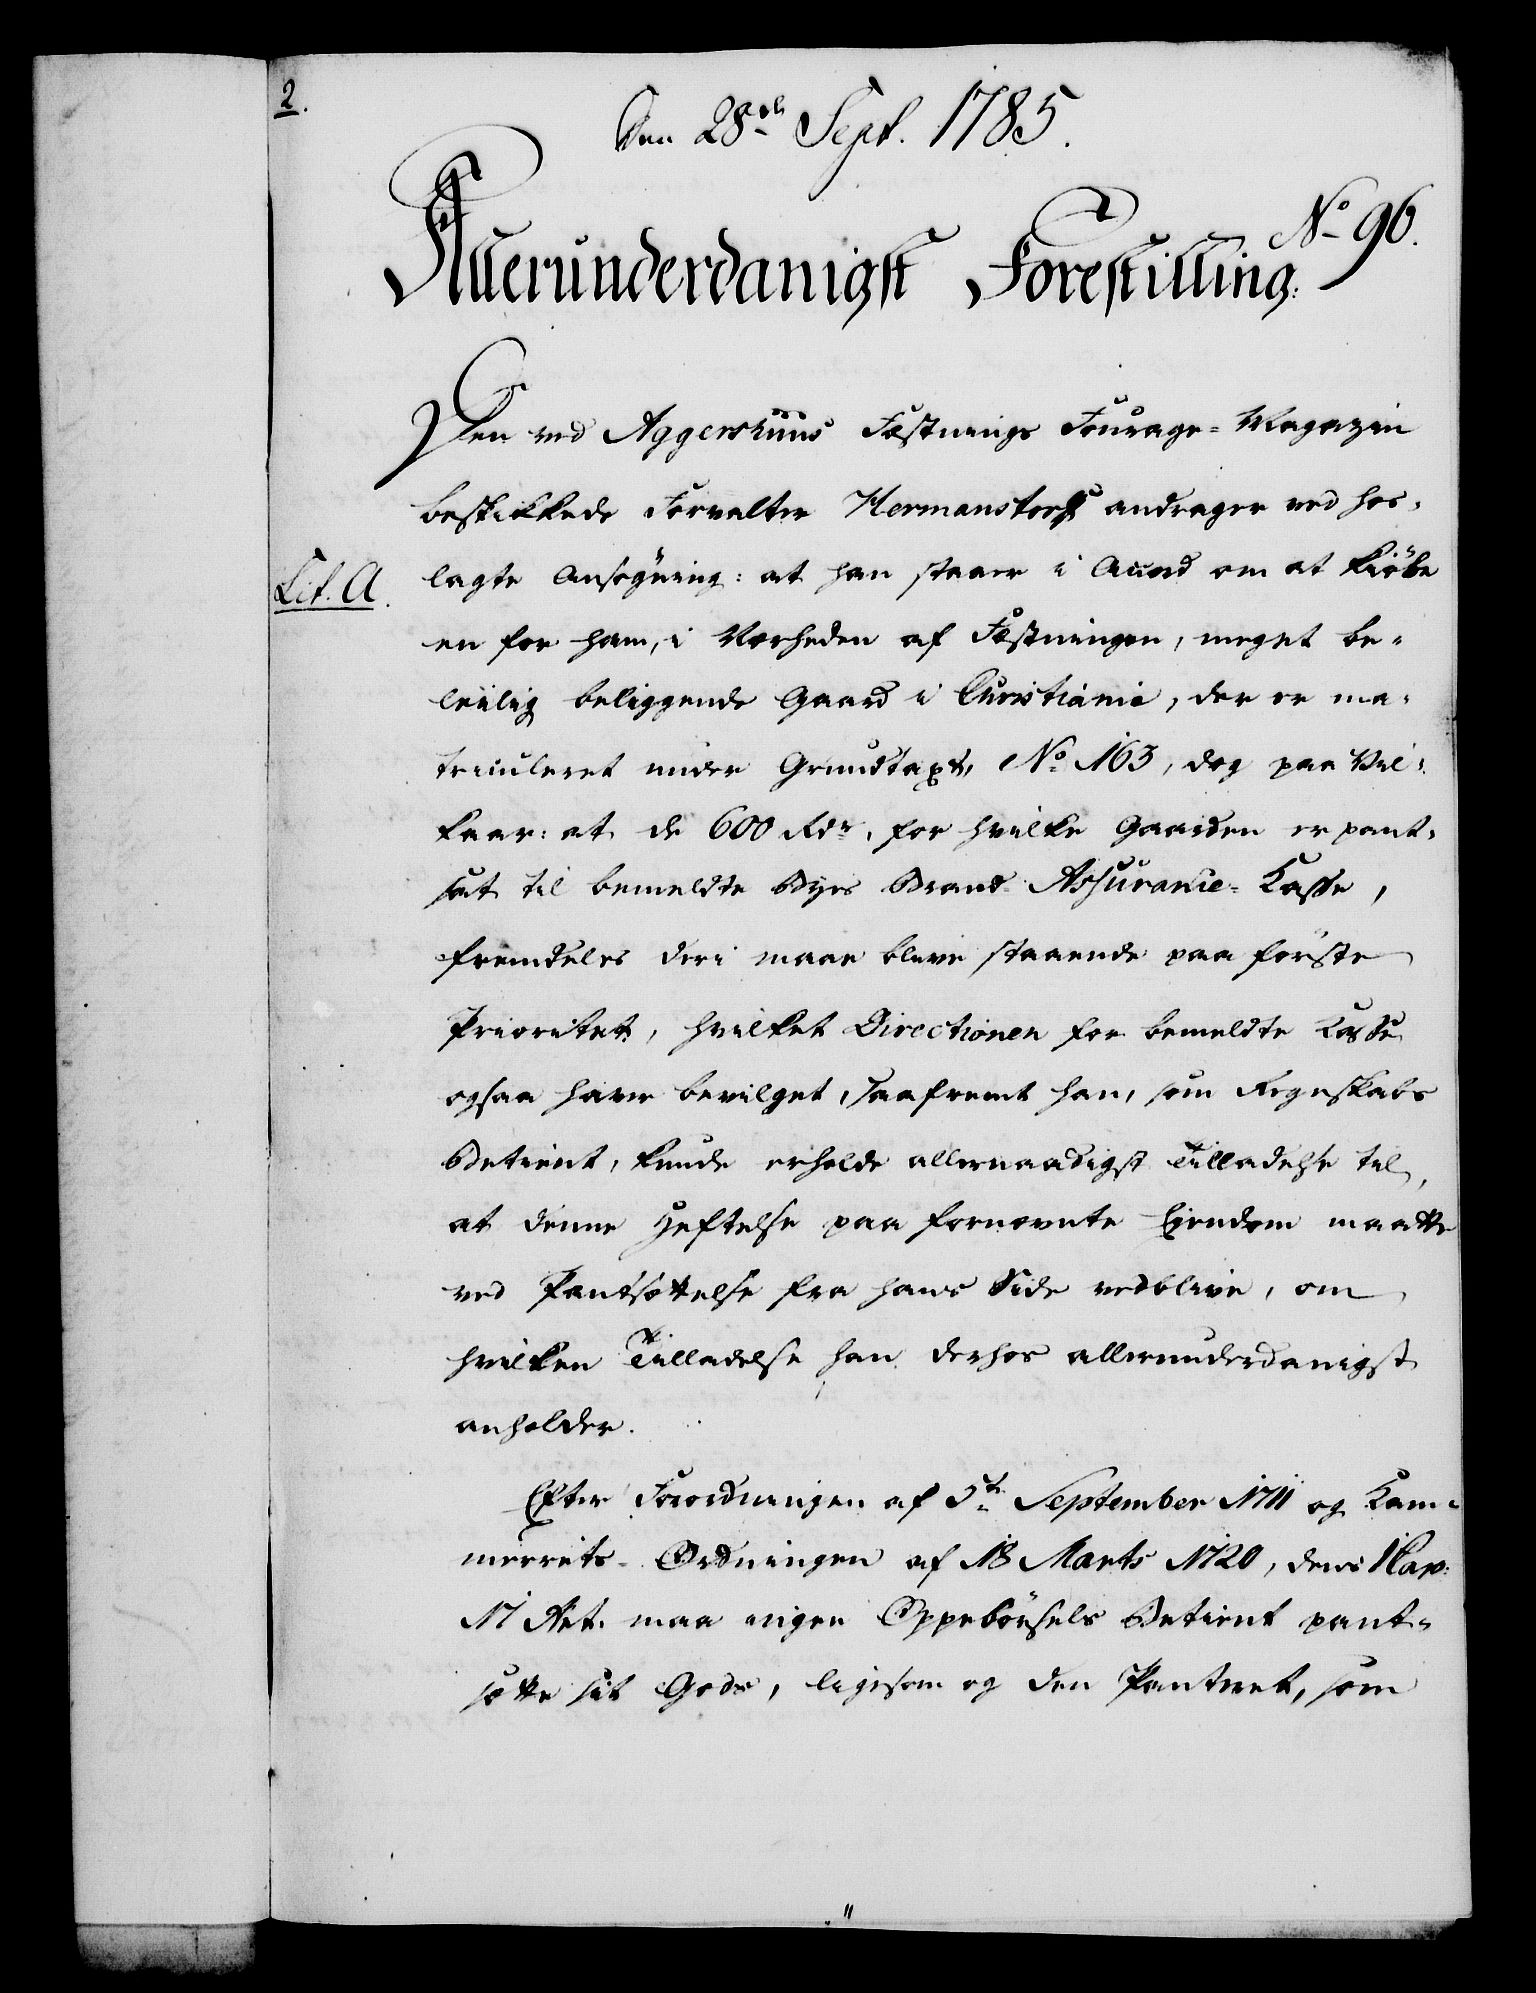 2.
Den 28de Sept. 1785.
No 96.
Allerunderdanigst Forestilling.
Den ved Aggershuus Fæstnings Fourage-Magazin
beskikkede Forvalter Hermanstorff andrager ved hos-
Lit. A. lagte Ansøgning: at han staaer i Accord om at kiöbe
en for ham, i Nærheden af Fæstningen, meget be-
leilig beliggende Gaard i Christiania, der er ma-
triculeret under Grundtaxt No 163, dog paa Vil-
kaar: at de 600 Rdr, for hvilke Gaarden er pant-
sat til bemeldte Byes Brand-Assurance-Casse,
fremdeles deri maae blive staaende paa förste
Prioritet, hvilket Directionen for bemeldte Casse
ogsaa haver bevilget, saafremt han, som Regnskabs
Betient, kunde erholde allernaadigst Tilladelse til,
at denne Heftelse paa fornævnte Eiendom maatte
ved Pantsættelse fra hans Side vedblive, om
hvilken Tilladelse han derhos allerunderdanigst
anholder.
Efter Forordningen af 5te September 1711 og Kam-
merrets-Ordningen af 18 Marts 1720, dens 1 Cap:
17 Art. maa ingen Oppebörsels Betient pant-
sætte sit Gods, ligesom og den Panteret, som